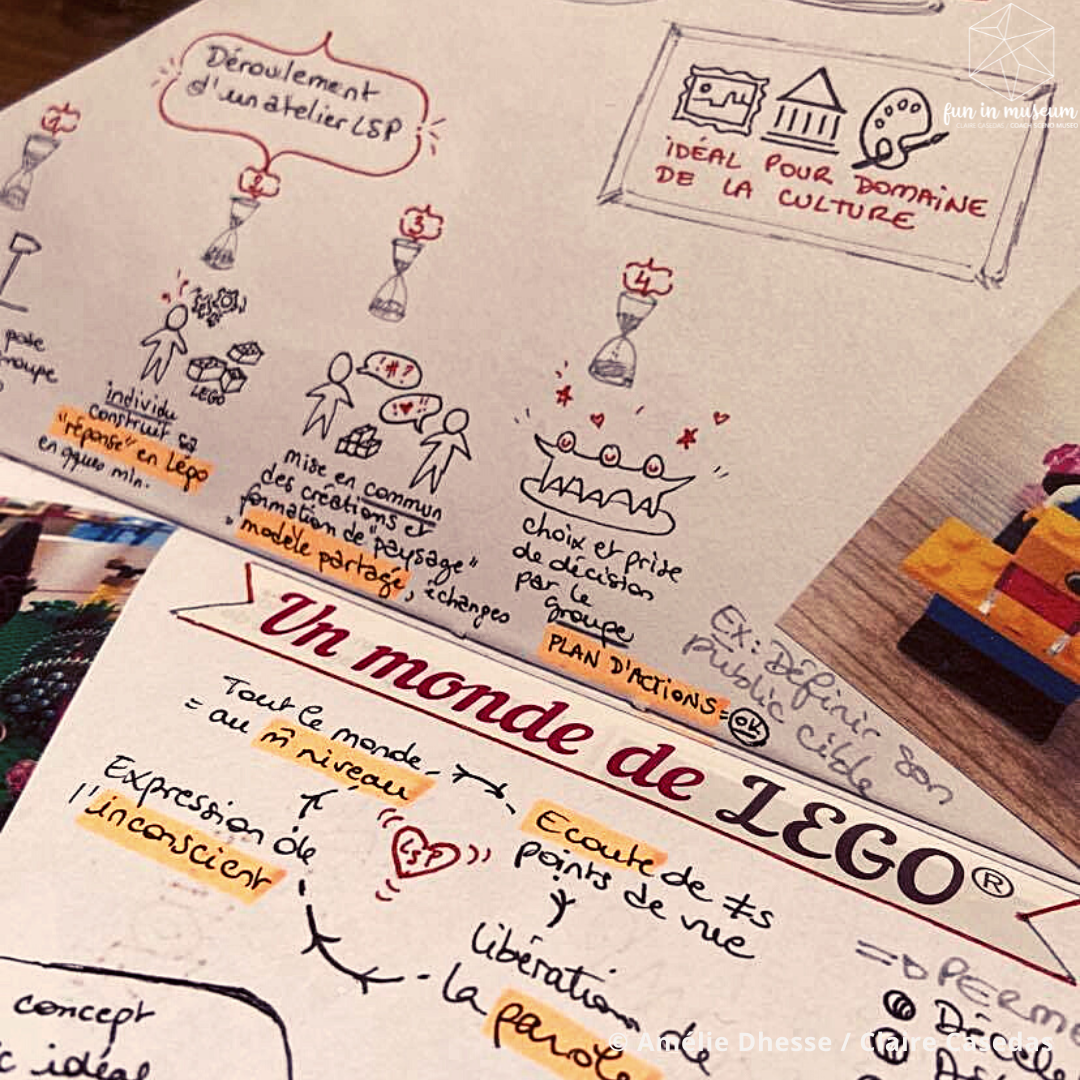 Déroulement
d'un atelier LSP
fun in museum
IDÉAL POUR DOMAINE
DE LA CULTURE
1
2
3
4
pose
groupe
LEGO
individu
construit sa
"réponse" en Légo
en qques min.
!#?
!♥!!
mise en commun
des créations et
formation de "paysage"
"modèle partagé, échanges
choix et prise
de décision
par le
groupe
PLAN D'ACTIONS = OK
Ex: Définir son
public cible
Un monde de LEGO®
Tout le monde
= au m̄ niveau
Expression de
l'inconscient
LSP
Ecoute de ≠s
points de vue
libération de
la parole
concept
idéal
=> PERME
Déceler
© Amélie Dhesse / Claire Casedas